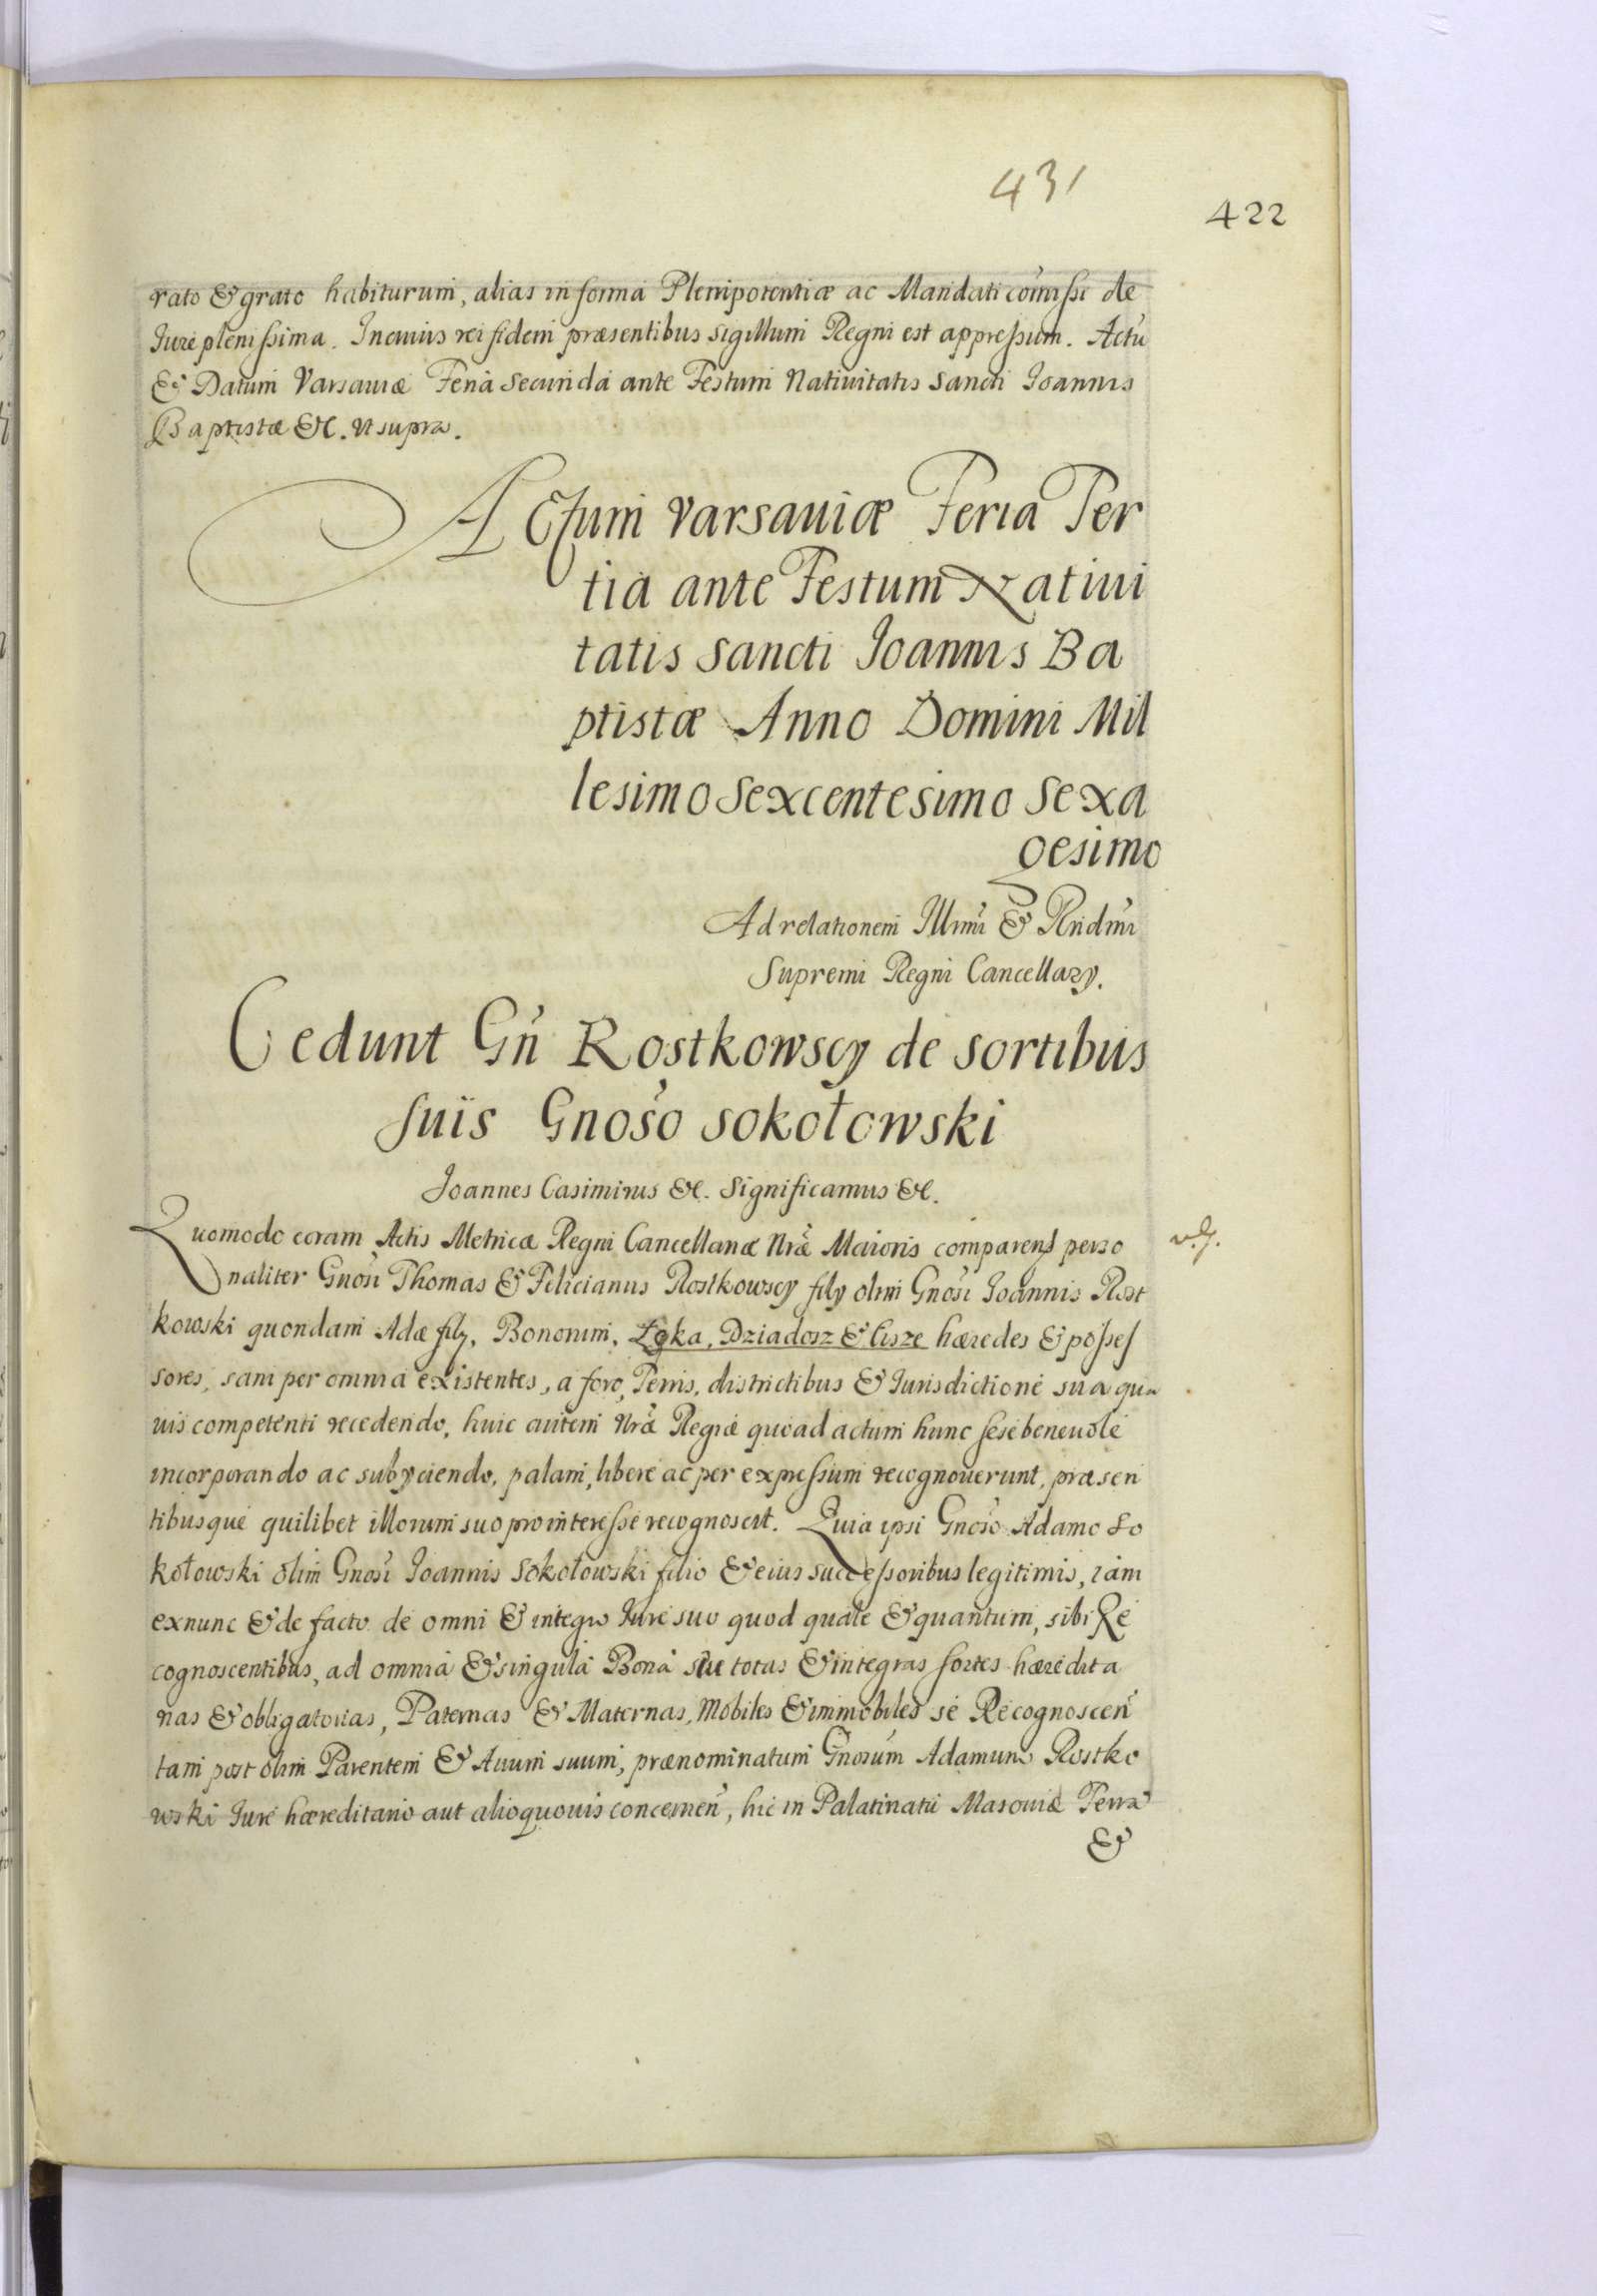 431
422
rato & grato habiturum, alias in forma Plenipotentiæ ac Mandati com̃issi de
Jure plenissima. In cuius rei fidem præsentibus sigillum Regni est appressum. Actũ
& Datum Varsauiæ Feria Secunda ante Festum Natiuitatis Sancti Joannis
Baptistæ &c. ut supra.
Actum Varsauiæ Feria Ter
tia ante Festum Natiui
tatis Sancti Joannis Ba
ptistæ Anno Domini Mil
lesimo Sexcentesimo Sexa
gesimo
Ad relationem Illmi & Rndmi
Supremi Regni Cancellarÿ.
Cedunt Gñ Rostkowscy de sortibus
suis Gnoso Sokołowski
Joannes Casimirus &c. Significamus &c.
Quomodo coram Actis Metricæ Regni Cancellariæ Nræ Maioris comparens perso
naliter Gnosi Thomas & Felicianus Rostkowscy filÿ olim Gnosi Joannis Rost
kowski quondam Adæ filÿ, Bonorum, Łęka, Dziadosz & Lisze hæredes & posses
sores, sani per omnia existentes, a foro, Terris, districtibus & Jurisdictione sua qua
uis competenti recedendo, huic autem Nræ Regiæ quoad actum hunc sese beneuole
incorporando ac subÿciendo, palam, libere ac per expressum recognouerunt, præsen
tibusque quilibet illorum suo pro interesse recognoscit. Quia ipsi Gnoso Adamo So
kołowski olim Gnosi Joannis Sokołowski filio & eius successoribus legitimis, iam
ex nunc & de facto de omni & integro Jure suo quod quale & quantum, sibi Re
cognoscentibus, ad omnia & singula Bona siue totas & integras sortes hæredita
rias & obligatorias, Paternas & Maternas, Mobiles & immobiles se Recognoscen̄
tam post olim Parentem & Auum suum, prænominatum Gnosum Adamum Rostko
wski Jure hæreditario aut alio quouis concernen̄, hic in Palatinatu Masouiæ Terra
&